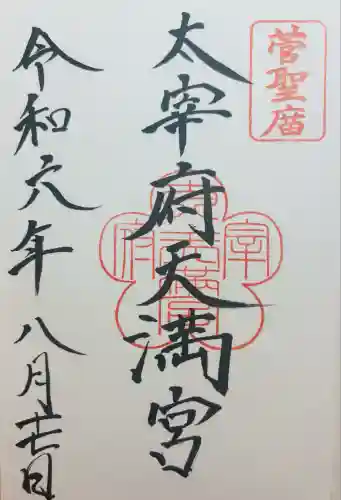 菅聖庿
太宰府天満宮
令和六年八月廿七日